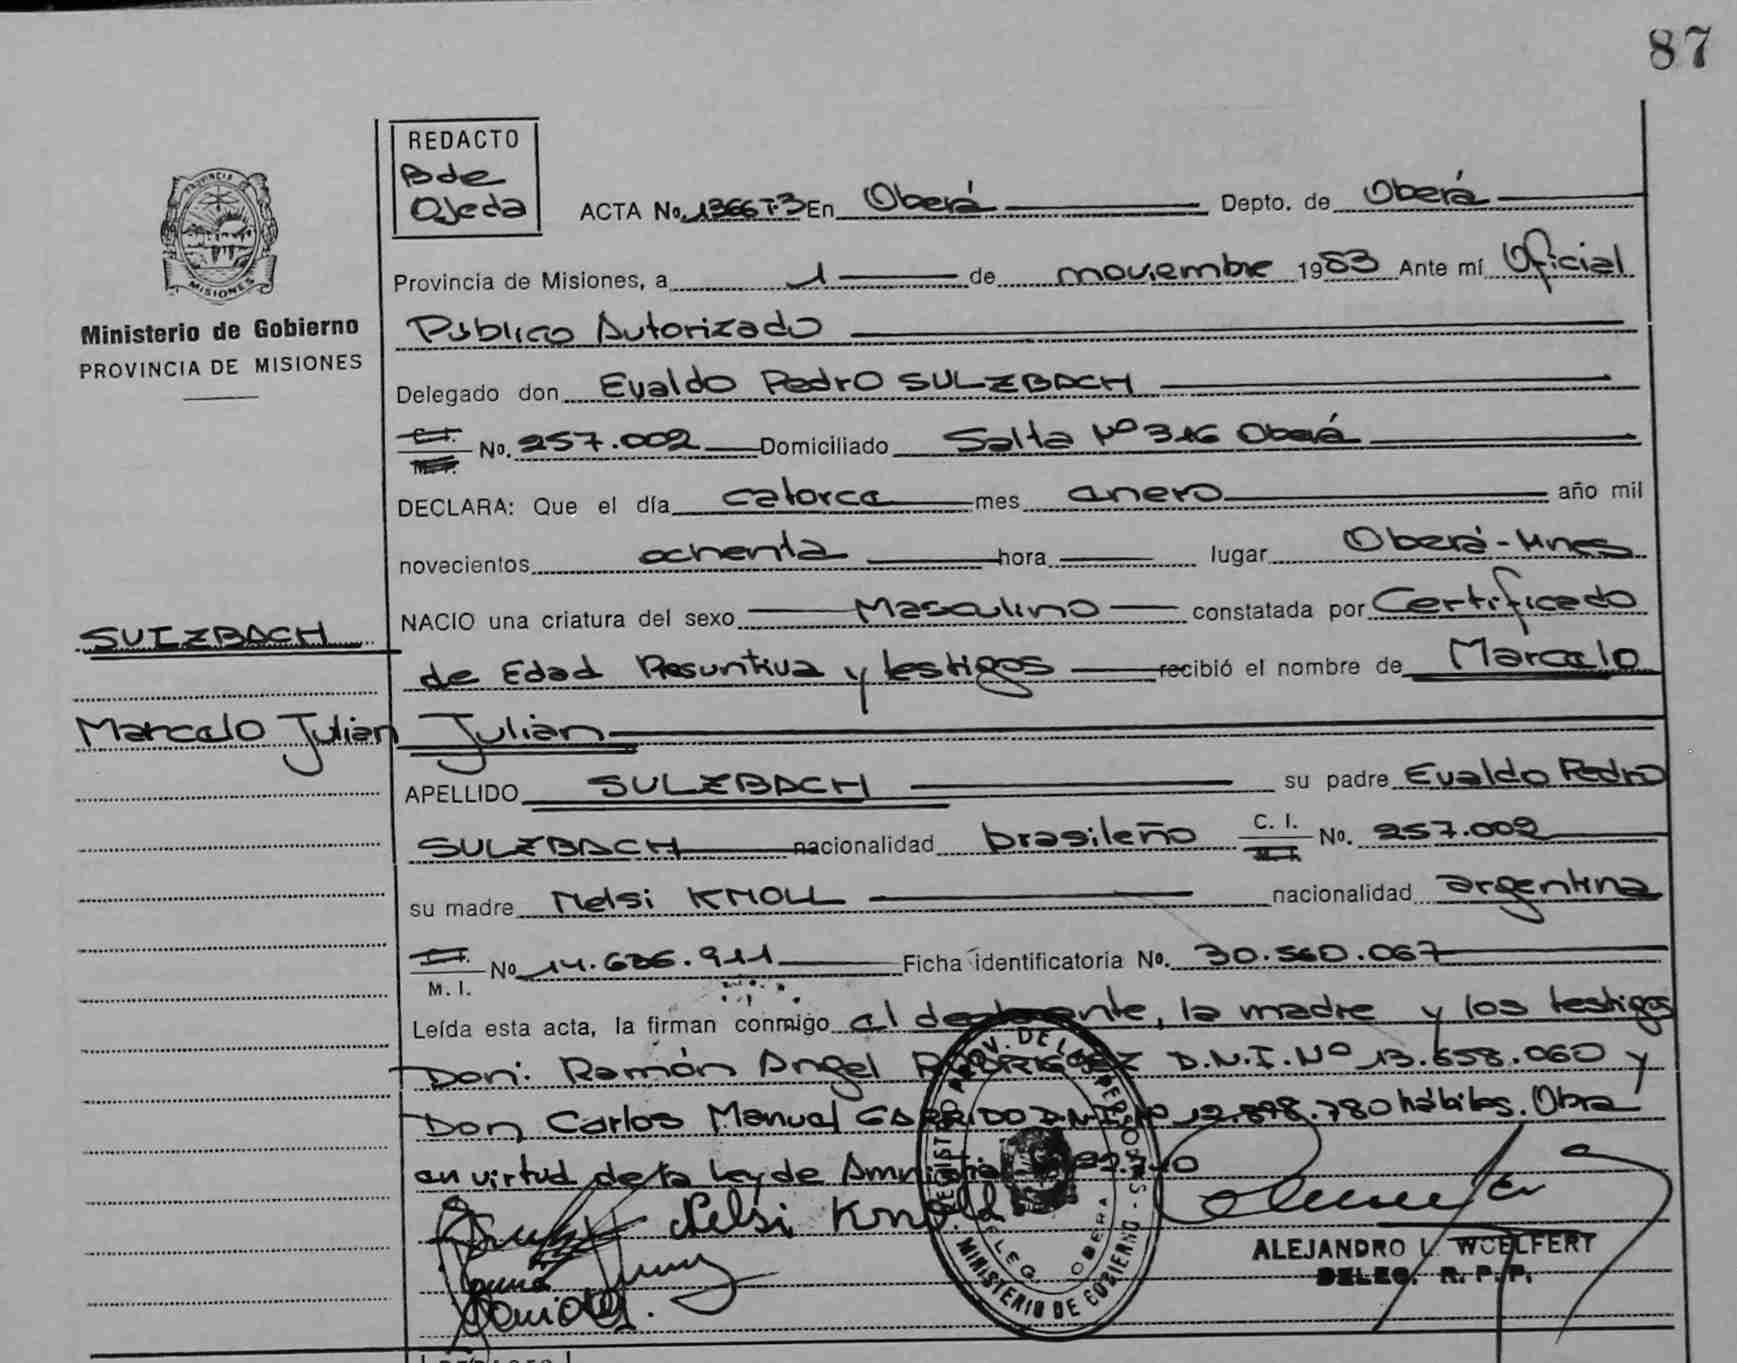 87
REDACTO
B de
Ojeda
ACTA No. 1366 T-3 En Oberá Depto. de Oberá
PROVINCIA DE
MISIONES
Ministerio de Gobierno
PROVINCIA DE MISIONES
Provincia de Misiones, a 1 de noviembre 1983 Ante mí Oficial
Público Autorizado
Delegado don Evaldo Pedro SULZBACH
No. 257.002 Domiciliado Salta Nº 316 Oberá
DECLARA: Que el día catorce mes enero año mil
novecientos ochenta hora lugar Oberá-Mnes
NACIO una criatura del sexo Masculino constatada por Certificado
de Edad Presuntiva y testigos recibió el nombre de Marcelo
Julián
SULZBACH
Marcelo Julián
APELLIDO SULZBACH su padre Evaldo Pedro
SULZBACH nacionalidad brasileño C. I. No. 257.002
su madre Nelsi KNOLL nacionalidad argentina
M. I. No 14.636.911 Ficha identificatoria No. 30.560.067
Leída esta acta, la firman conmigo el declarante, la madre y los testigos
Don: Ramón Angel RODRIGUEZ D.N.I. Nº 13.658.060 y
Don Carlos Manuel GARRIDO D.N.I. Nº 12.898.780 hábiles. Obra
en virtud de la Ley de Amnistía
Nelsi Knoll
REGISTRO PROV. DE LAS PERSONAS
MINISTERIO DE GOBIERNO
DELEG. OBERA
ALEJANDRO L. WOELFERT
DELEG. R. P. P.
REDACTO